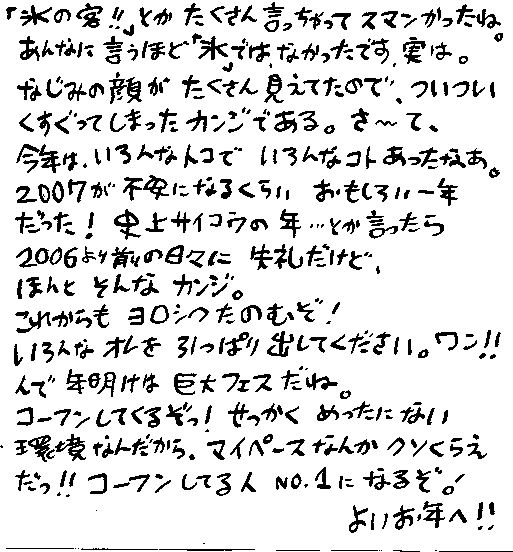 「氷の客!!」とか たくさん言っちゃって スマンかったね。
あんなに 言うほど「氷」では なかったです、実は。
なじみの顔が たくさん見えてたので、ついつい
くすぐってしまった カンジである。さ〜て、
今年は、いろんなトコで いろんなコト あったなあ。
2007が 不安になるくらい おもしろい一年
だった! 史上サイコウの 年…とか言ったら
2006より前の日々に 失礼だけど、
ほんと そんな カンジ。
これからも ヨロシクたのむぞ!
いろんな オレを 引っぱり出してください。ワン!!
んで 年明けは 巨大フェスだね。
コーフンしてくるぞっ! せっかく めったにない
環境なんだから、マイペースなんか クソくらえ
だっ!! コーフンしてる人 NO.1に なるぞ!
よいお年へ!!